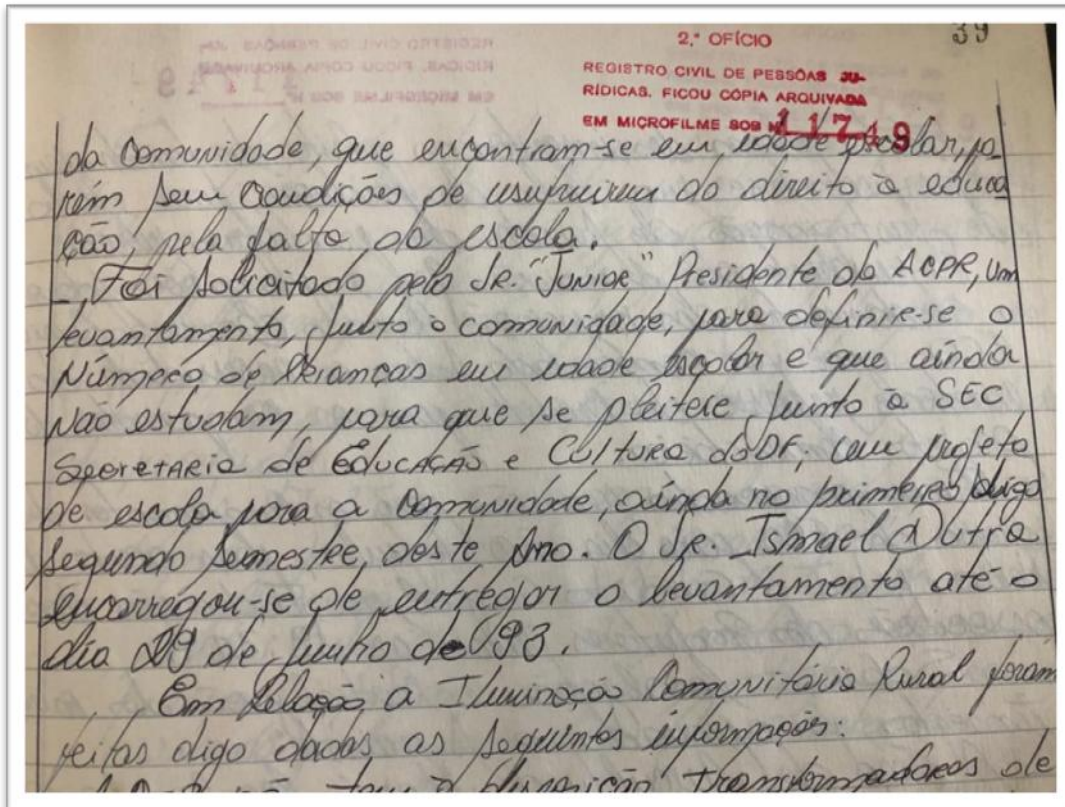 39
2.º OFÍCIO
REGISTRO CIVIL DE PESSÔAS JU-
RÍDICAS. FICOU CÓPIA ARQUIVADA
EM MICROFILME SOB Nº 11749
da Comunidade, que encontram-se em idade escolar, po-
rém sem condições de usufruirem do direito à educa
ção, pela falta da escola.
- Foi solicitado pelo SR. "JUNIOR" Presidente da ACPR, um
levantamento, junto à comunidade, para definir-se o
Número de Crianças em idade escolar e que ainda
Não estudam, para que se pleiteie, junto à SEC
Secretaria de Educação e Cultura do DF, um projeto
de escola para a Comunidade, ainda no primeiro digo
segundo semestre, deste Ano. O Sr. Ismael Dutra
encarregou-se de entregar o levantamento até o
dia 29 de junho de 93.
Em Relação a Iluminação Comunitária Rural foram
feitas digo dadas as seguintes informações:
disposição transformadores de